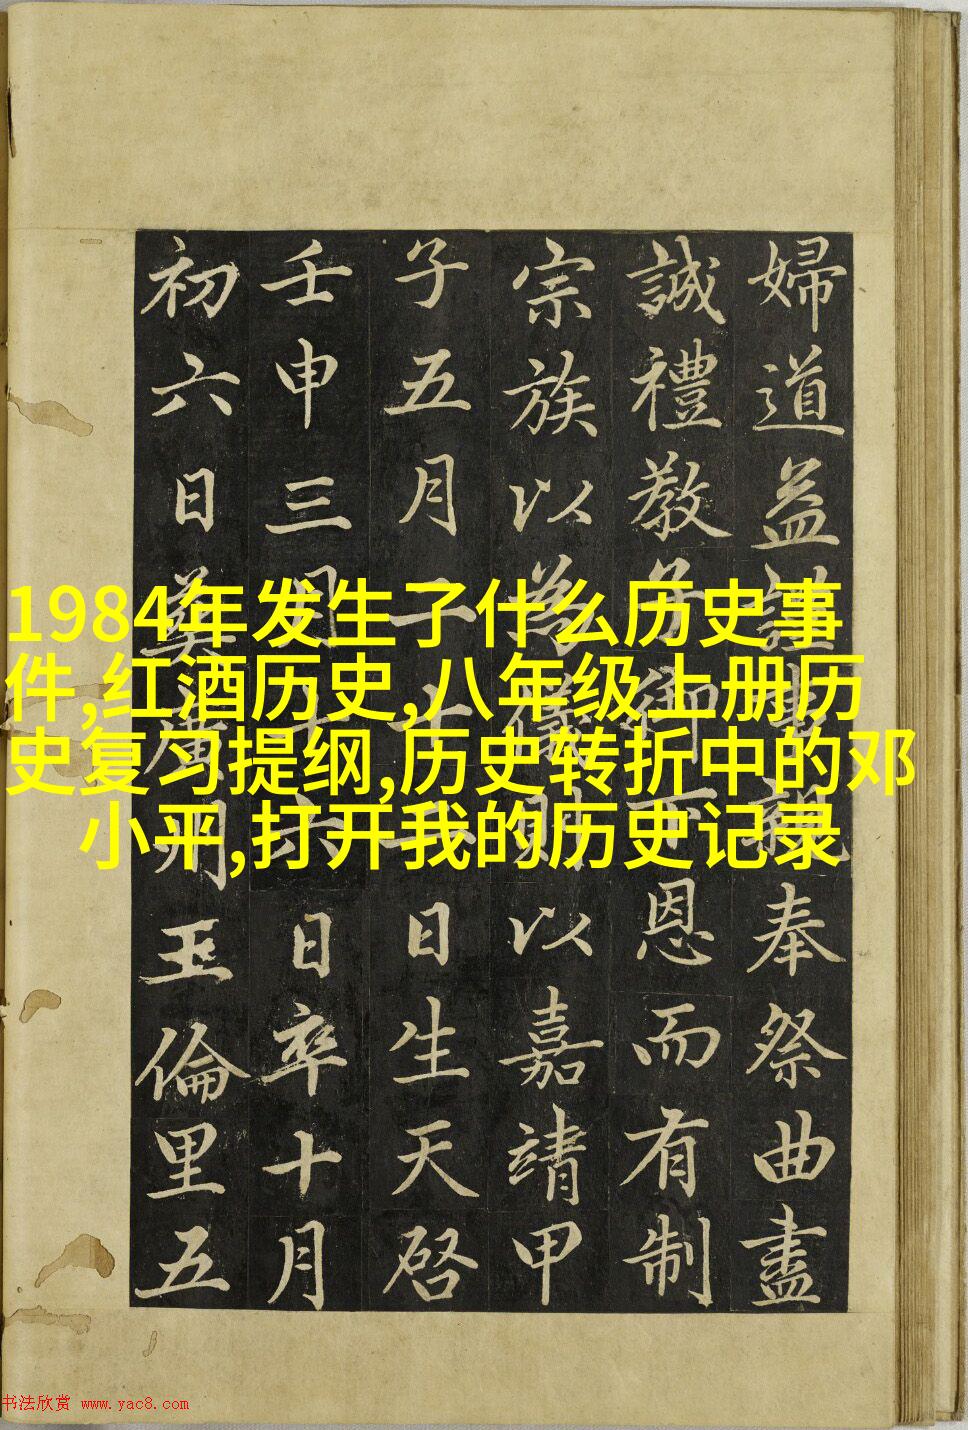 1984年发生了什么历史事
件,红酒历史,八年级上册历
史复习提纲,历史转折中的邓
小平,打开我的历史记录
婦道益親奉祭曲盡
誠禮教子御下恩而有制
宗族以為儀則以嘉靖甲
子五月二十一日生天啓
壬申三六日卒十月
初六日葬王倫里五
书法欣赏 www.yac8.com